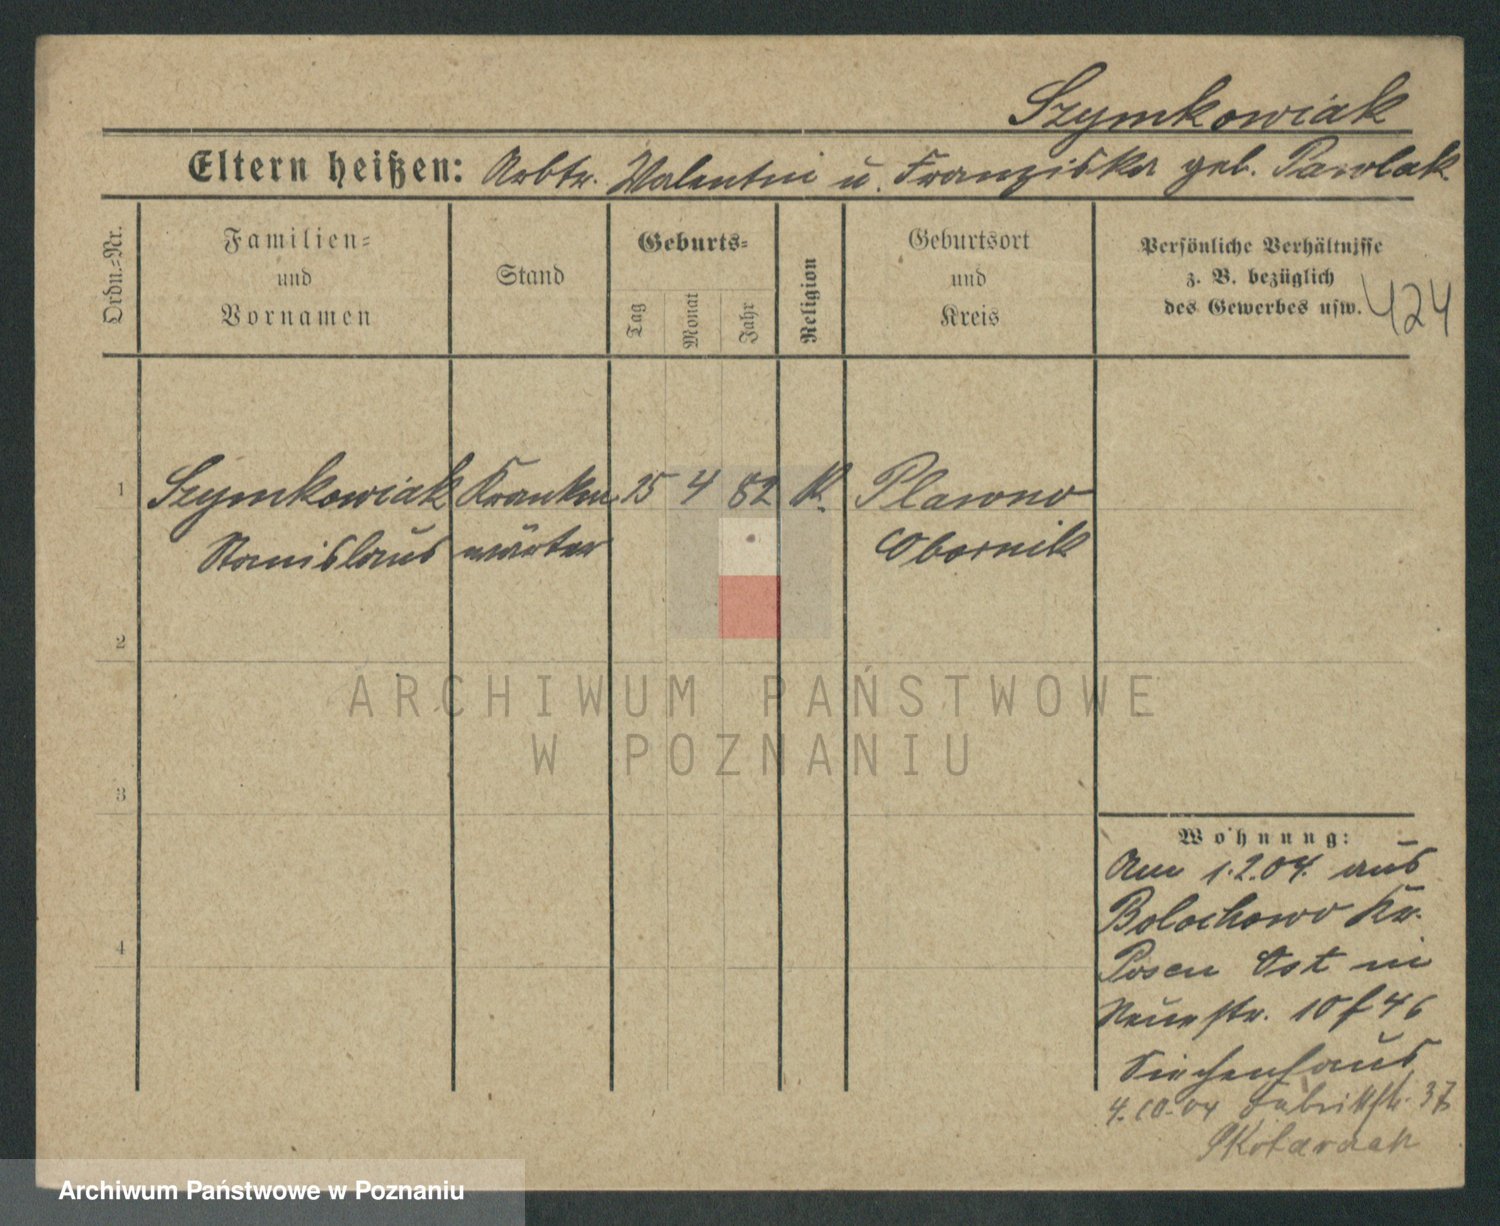 Szymkowiak
Eltern heißen: Arbtr. Valentin u. Franziska geb. Pawlak
Ordn.-Nr.
Familien-
und
Vornamen
Stand
Geburts-
Tag
Monat
Jahr
Religion
Geburtsort
und
Kreis
Persönliche Verhältnisse
z. B. bezüglich
des Gewerbes usw.
424
1
Szymkowiak Kranken 15 4 82 K. Plawno
Stanislaus wärter Obornik
2
3
4
ARCHIWUM PAŃSTWOWE
W POZNANIU
Wohnung:
Am 1.2.04. aus
Bolechowo Kr.
Posen Ost in
Neuestr. 10 f 46
Siechenhaus
4.10.04 Fabrikstr. 37
Archiwum Państwowe w Poznaniu